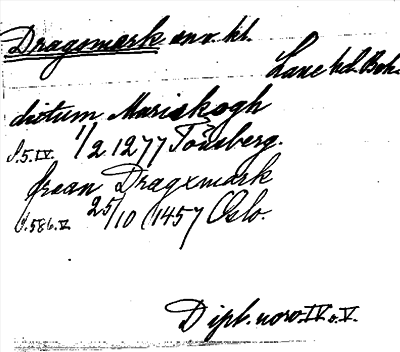 Dragsmark anv. kl.
Lane hd. Boh.
dictum Mariskogh
S.5.IV. 1/2 1277 Tönsberg.
frean Dragxmark
S.586.V 25/10 1457 Oslo.
Dipl. norv. IV o. V.